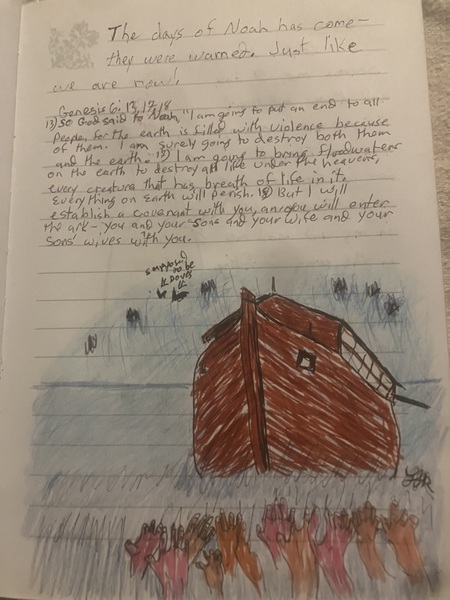 The days of Noah has come-
they were warned. Just like
we are now!
Genesis 6:13,17,18
13) So God said to Noah, "I am going to put an end to all
people, for the earth is filled with violence because
of them. I am surely going to destroy both them
and the earth. 17) I am going to bring floodwaters
on the earth to destroy all life under the heavens,
every creature that has breath of life in it.
Everything on Earth will perish. 18) But I will
establish a covenant with you, and you will enter
the ark- you and your sons and your wife and your
sons' wives with you.
supposed
to be
Doves